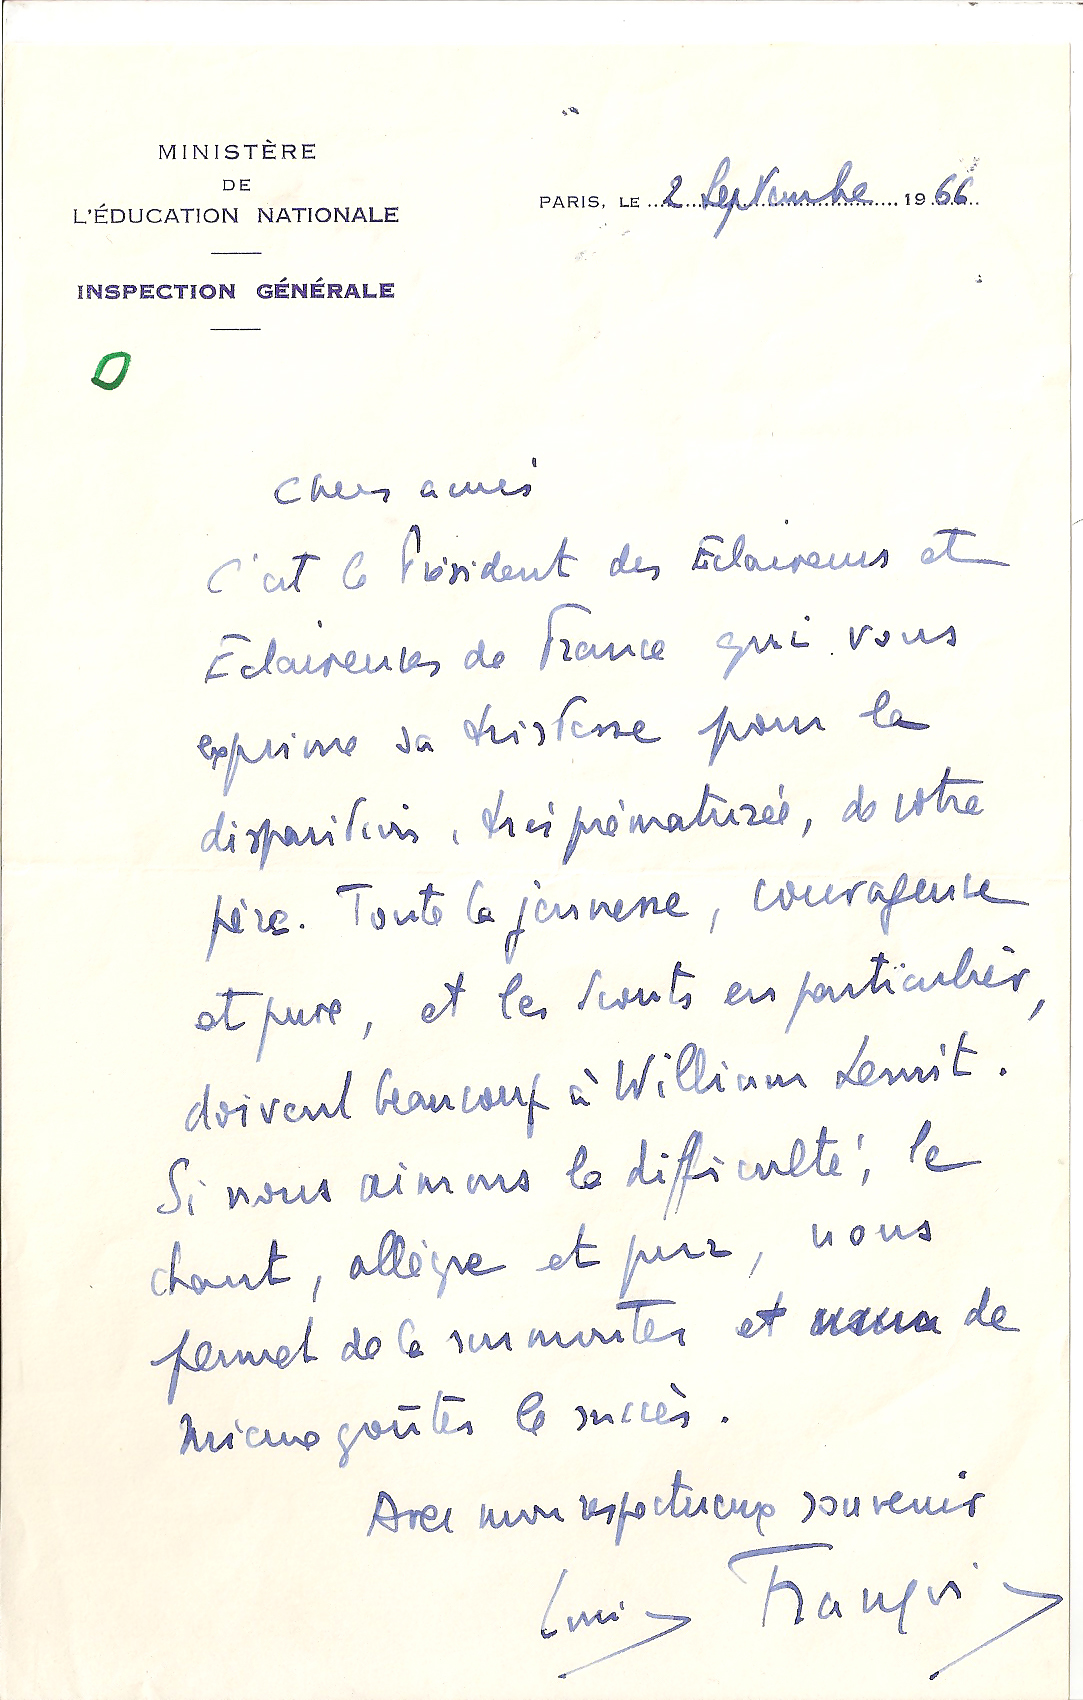 MINISTÈRE
DE
L'ÉDUCATION NATIONALE
INSPECTION GÉNÉRALE
PARIS, LE 2 Septembre 1966
Chers amis
C'est le Président des Eclaireurs et
Eclaireuses de France qui vous
exprime sa tristesse pour la
disparition, très prématurée, de votre
père. Toute la jeunesse, courageuse
et pure, et les scouts en particulier,
doivent beaucoup à William Lemit.
Si nous aimons la difficulté, le
chant, allègre et pur, nous
permet de la surmonter et de
mieux goûter le succès.
Avec mon respectueux souvenir
Louis François